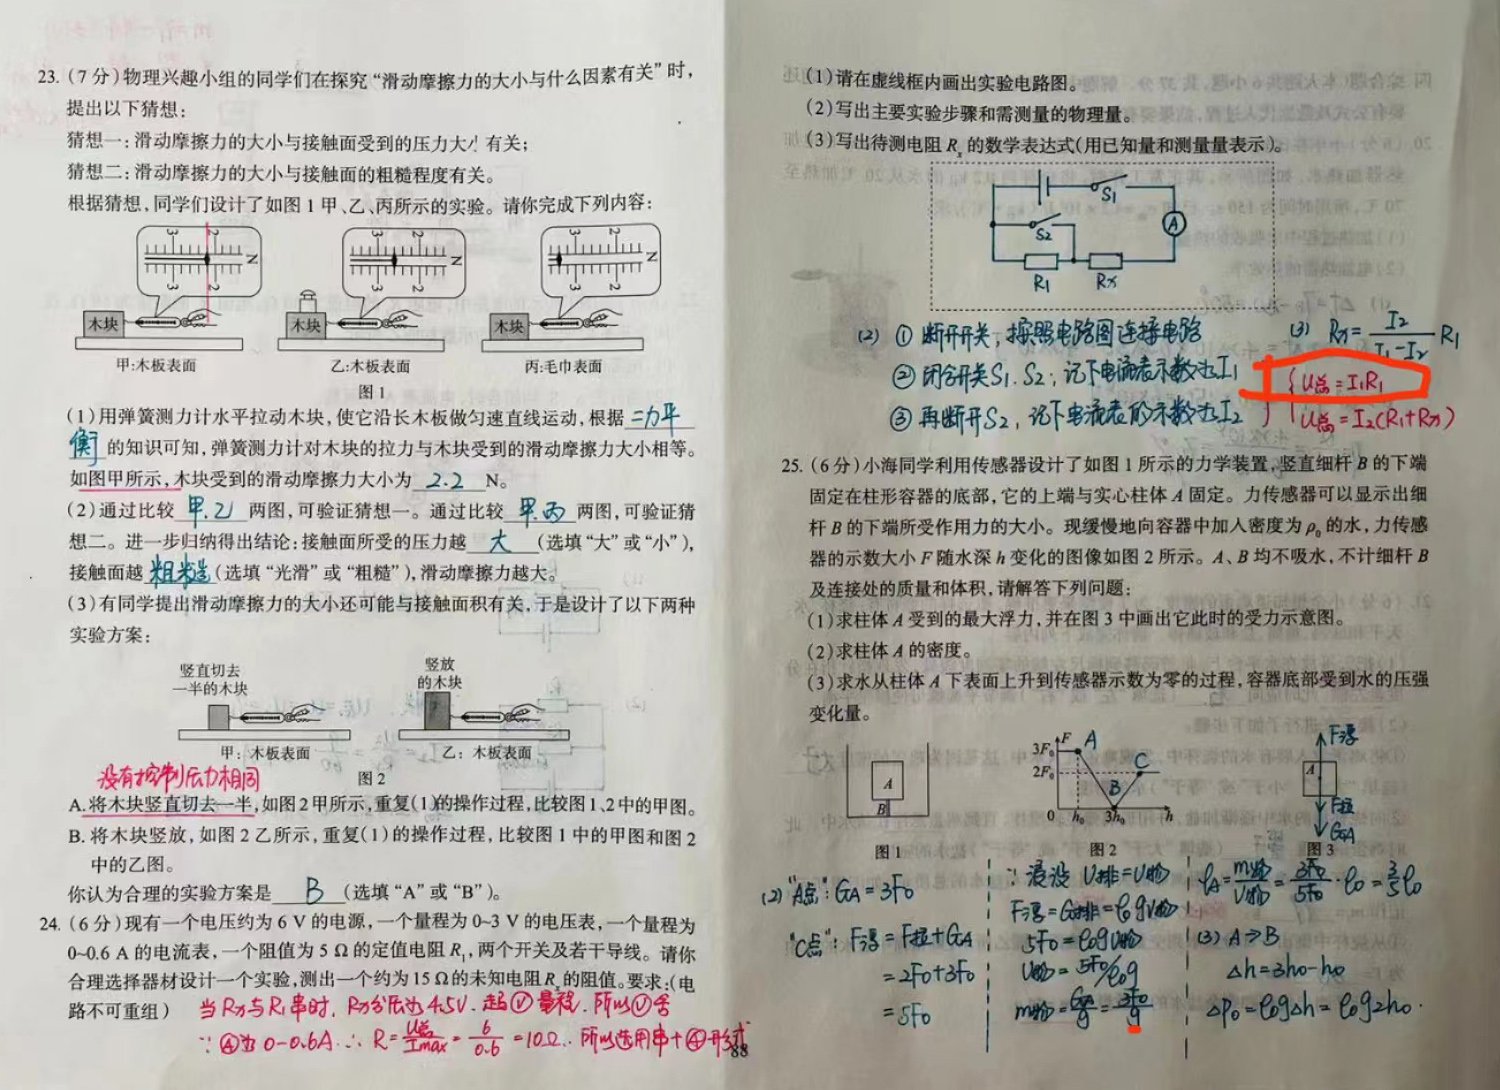 23.(7分)物理兴趣小组的同学们在探究“滑动摩擦力的大小与什么因素有关”时,
提出以下猜想:
猜想一:滑动摩擦力的大小与接触面受到的压力大小有关;
猜想二:滑动摩擦力的大小与接触面的粗糙程度有关。
根据猜想,同学们设计了如图1甲、乙、丙所示的实验。请你完成下列内容:
3 2 N
3 2 N
3 2 N
木块
木块
木块
甲:木板表面
乙:木板表面
丙:毛巾表面
图1
(1)用弹簧测力计水平拉动木块,使它沿长木板做匀速直线运动,根据 二力平
衡 的知识可知,弹簧测力计对木块的拉力与木块受到的滑动摩擦力大小相等。
如图甲所示,木块受到的滑动摩擦力大小为 2.2 N。
(2)通过比较 甲.乙 两图,可验证猜想一。通过比较 甲.丙 两图,可验证猜
想二。进一步归纳得出结论:接触面所受的压力越 大 (选填“大”或“小”),
接触面越 粗糙 (选填“光滑”或“粗糙”),滑动摩擦力越大。
(3)有同学提出滑动摩擦力的大小还可能与接触面积有关,于是设计了以下两种
实验方案:
竖直切去
一半的木块
竖放
的木块
甲:木板表面
乙:木板表面
图2
没有控制压力相同
A.将木块竖直切去一半,如图2甲所示,重复(1)的操作过程,比较图1、2中的甲图。
B.将木块竖放,如图2乙所示,重复(1)的操作过程,比较图1中的甲图和图2
中的乙图。
你认为合理的实验方案是 B (选填“A”或“B”)。
24.(6分)现有一个电压约为6V的电源,一个量程为0~3V的电压表,一个量程为
0~0.6A的电流表,一个阻值为5Ω的定值电阻R₁,两个开关及若干导线。请你
合理选择器材设计一个实验,测出一个约为15Ω的未知电阻Rₓ的阻值。要求:(电
路不可重组)
当Rx与R1串时,Rx分压为4.5V.超Ⓥ量程.所以Ⓥ舍
∵Ⓐ为0-0.6A.∴R=U总/Imax=6/0.6=10Ω.所以选用串+Ⓐ形式
88
(1)请在虚线框内画出实验电路图。
(2)写出主要实验步骤和需测量的物理量。
(3)写出待测电阻Rₓ的数学表达式(用已知量和测量量表示)。
S1
S2
A
R1
Rx
(2) ①断开开关,按照电路图连接电路
②闭合开关S1.S2,记下电流表示数为I1
③再断开S2,记下电流表的示数为I2
(3) Rx=I2/(I1-I2) R1
{U总=I1R1
U总=I2(R1+Rx)
25.(6分)小海同学利用传感器设计了如图1所示的力学装置,竖直细杆B的下端
固定在柱形容器的底部,它的上端与实心柱体A固定。力传感器可以显示出细
杆B的下端所受作用力的大小。现缓慢地向容器中加入密度为ρ₀的水,力传感
器的示数大小F随水深h变化的图像如图2所示。A、B均不吸水,不计细杆B
及连接处的质量和体积,请解答下列问题:
(1)求柱体A受到的最大浮力,并在图3中画出它此时的受力示意图。
(2)求柱体A的密度。
(3)求水从柱体A下表面上升到传感器示数为零的过程,容器底部受到水的压强
变化量。
A
B
图1
F
3F₀
2F₀
A
B
C
0 h₀ 3h₀ h
图2
F浮
A
F拉
GA
图3
(2)“A点”:GA=3F0
“C点”:F浮=F拉+GA
=2F0+3F0
=5F0
∵浸没 V排=V物
F浮=G排=ρ0gV物
5F0=ρ0gV物
V物=5F0/ρ0g
m物=GA/g=3F0/g
ρA=m物/V物=3F0/5F0·ρ0=3/5ρ0
(3) A→B
Δh=3h0-h0
Δp0=ρ0gΔh=ρ0g2h0.